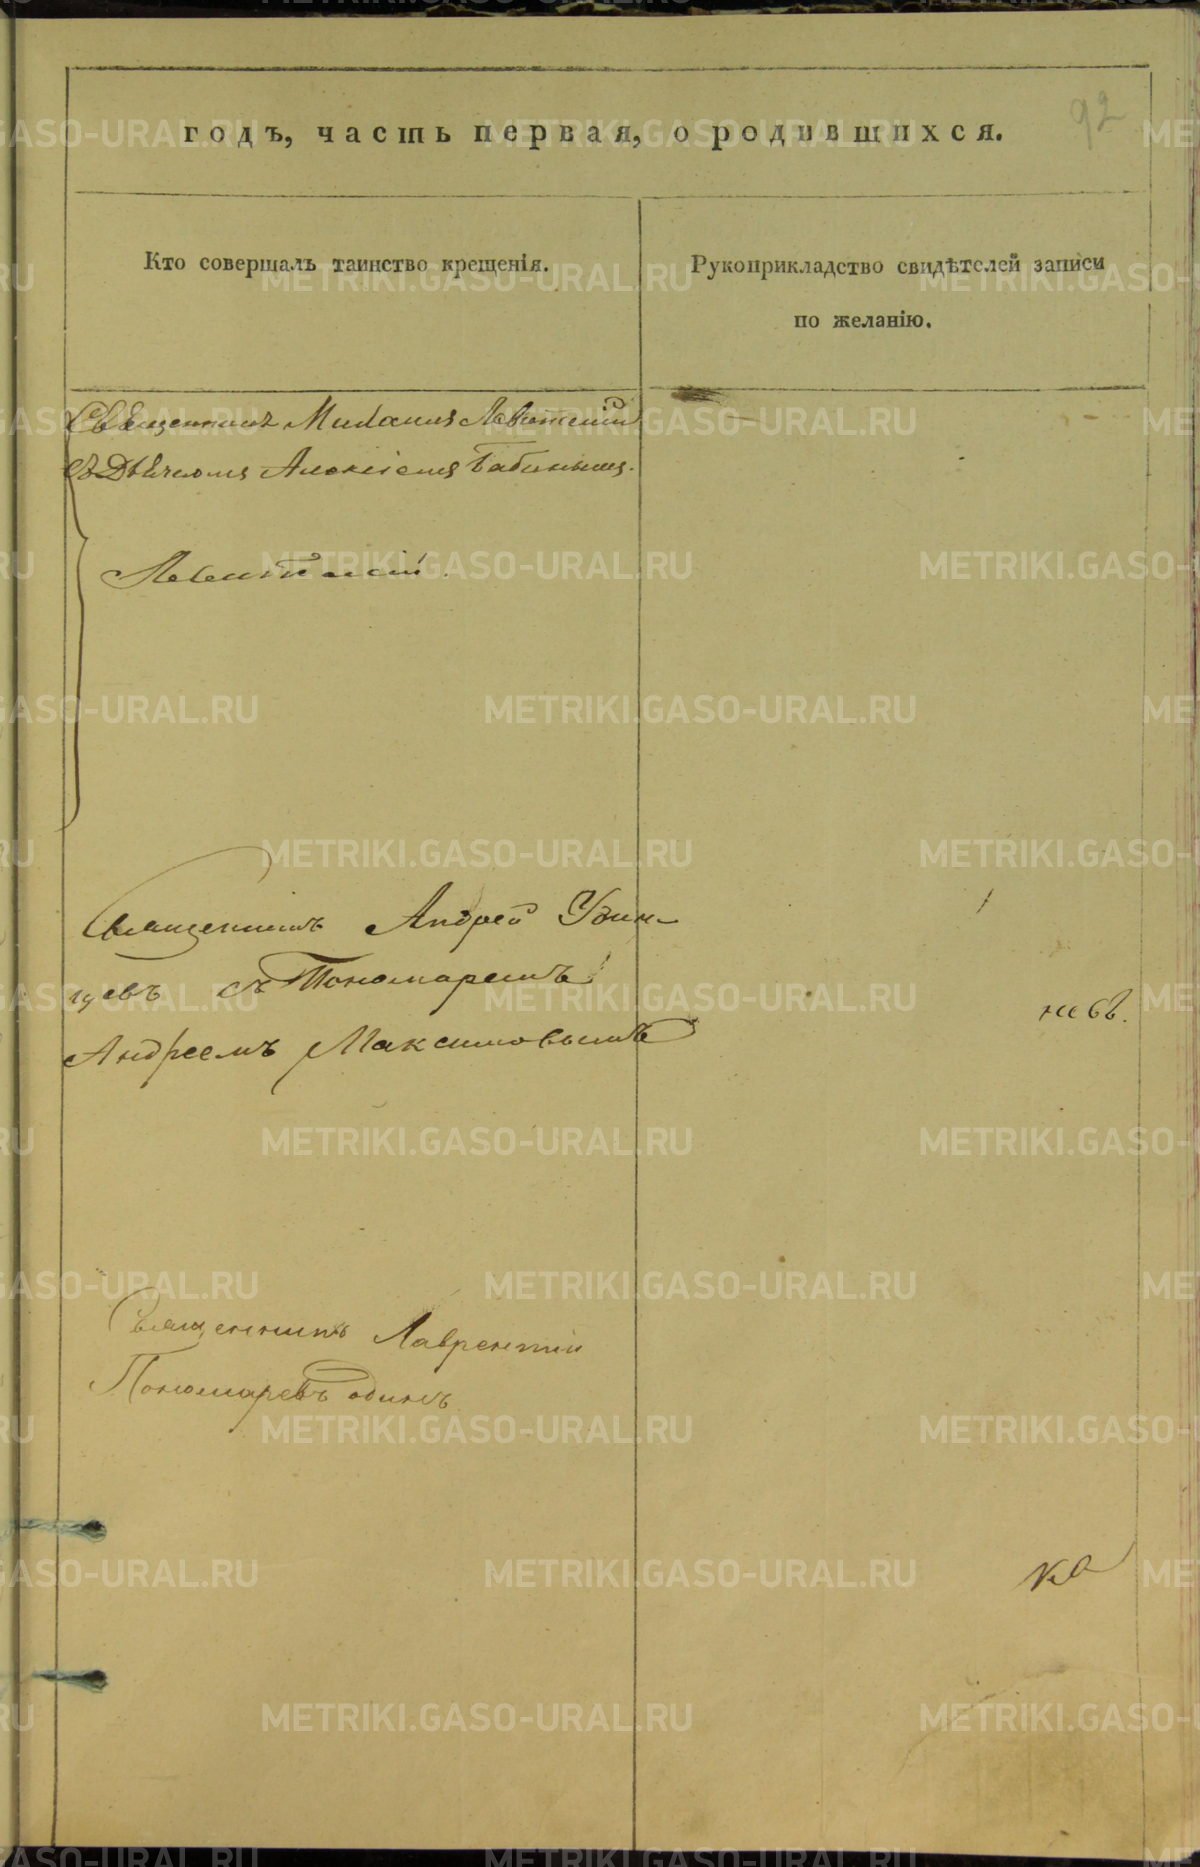 92
годъ, часть первая, о родившихся.
Кто совершалъ таинство крещенія.
Рукоприкладство свидѣтелей записи
по желанію.
Священникъ Михаилъ Левитскій
съ Дьячкомъ Алексіемъ Бабинымъ.
Левитскій.
Священникъ Андрей Удин-
цевъ съ Пономаремъ
Андреемъ Максимовымъ
невъ.
Священникъ Лаврентій
Пономаревъ одинъ
ка
METRIKI.GASO-URAL.RU